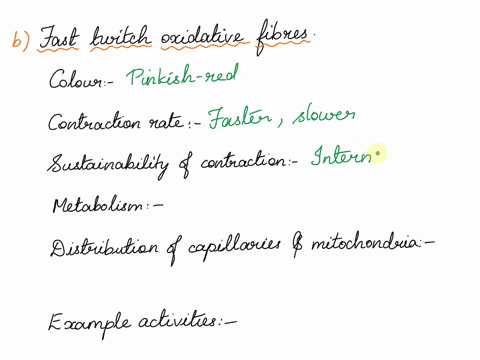 b) Fast twitch oxidative fibres.
Colour:- Pinkish-red
Contraction rate:- Faster, slower
Sustainability of contraction:- Intern
Metabolism:-
Distribution of capillaries & mitochondria:-
Example activities:-